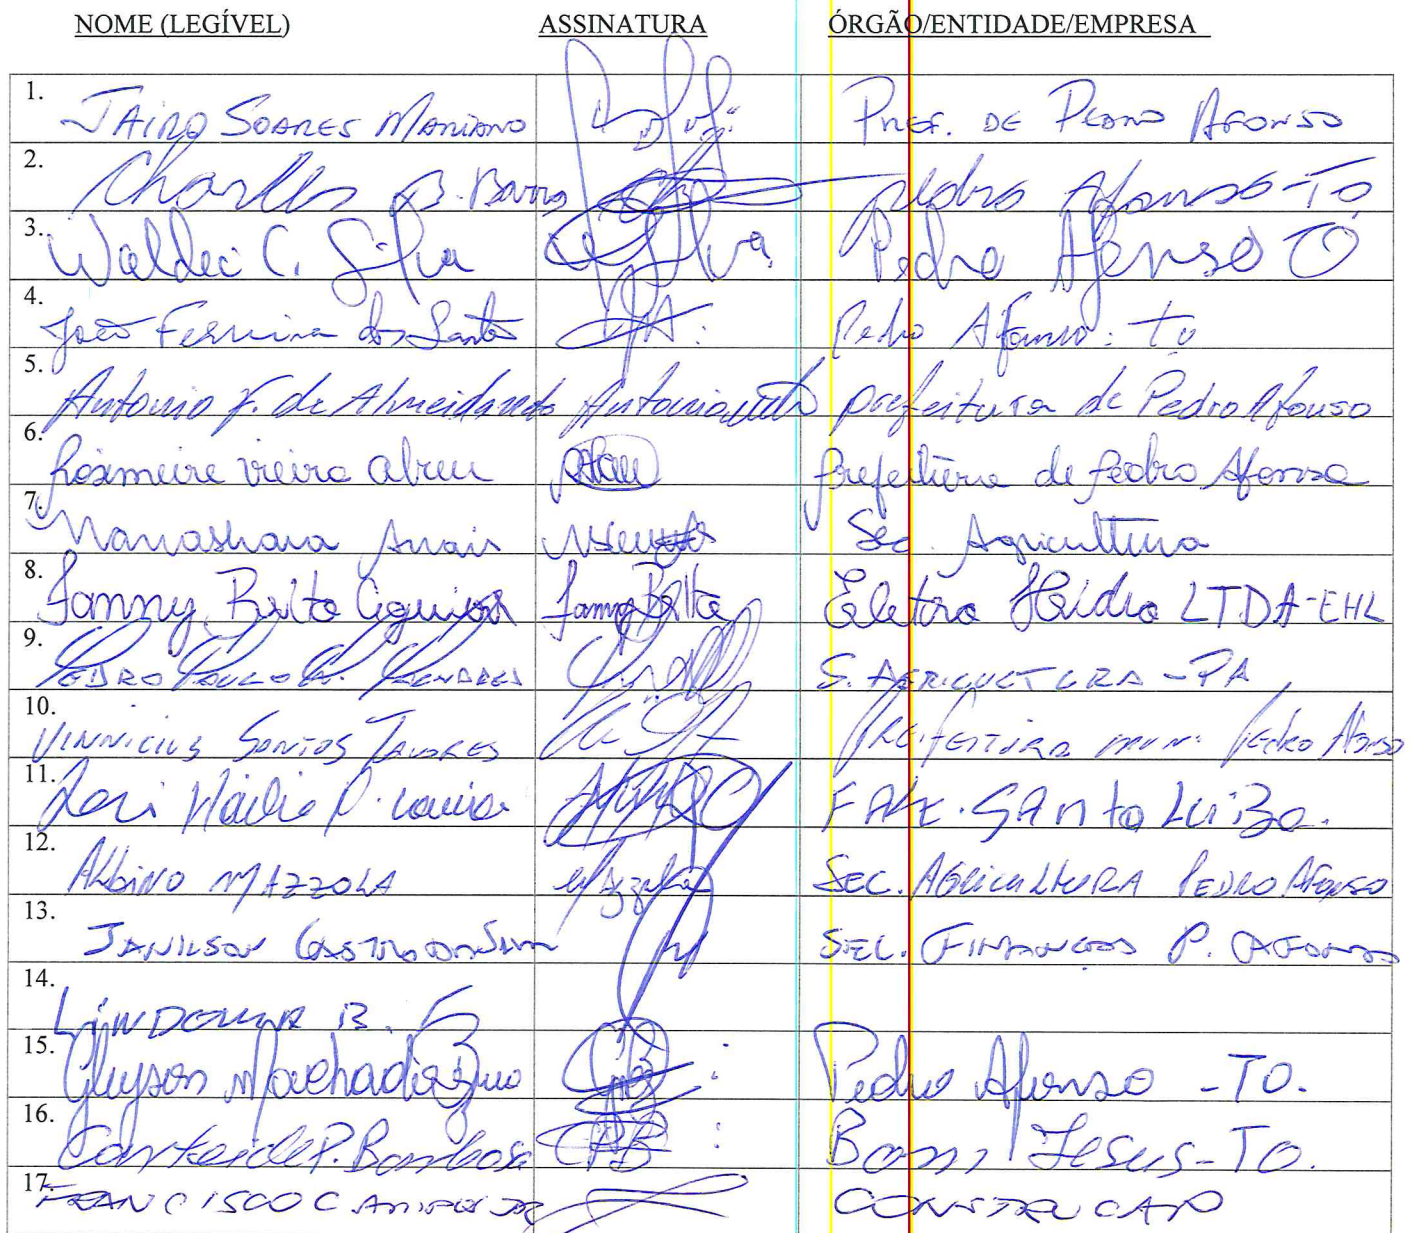 NOME (LEGÍVEL) ASSINATURA ÓRGÃO/ENTIDADE/EMPRESA
1. JAIRO SOARES MARIANO PREF. DE PEDRO AFONSO
2. Charlles B. Barros Pedro Afonso-TO
3. Waldeci C. Silva Silva Pedro Afonso TO
4. João Ferreira dos Santos Pedro Afonso: to
5. Antonio F. de Almeida Antonio prefeitura de Pedro Afonso
6. Rosimeire vieira abreu prefeitura de Pedro Afonso
7. Sec. Agricultura
8. Fanny Brito Fanny Brito Eletro Hidro LTDA-EHL
9. PEDRO PAULO S. AGRICULTURA - PA
10. VINNICIUS SANTOS TAVARES PREFEITURA MUN. Pedro Afonso
11. FAZ. SANta LUiza.
12. ALBINO MAZZOLA SEC. AGRICULTURA PEDRO AFONSO
13. JANILSON CASTRO DA SILVA SEC. FINANÇAS P. AFONSO
14. LINDOMAR B.
15. Gleyson Machado Pedro Afonso - TO.
16. P. Barbosa CPB Bom Jesus-TO.
17. FRANCISCO C CONSTRUCAP